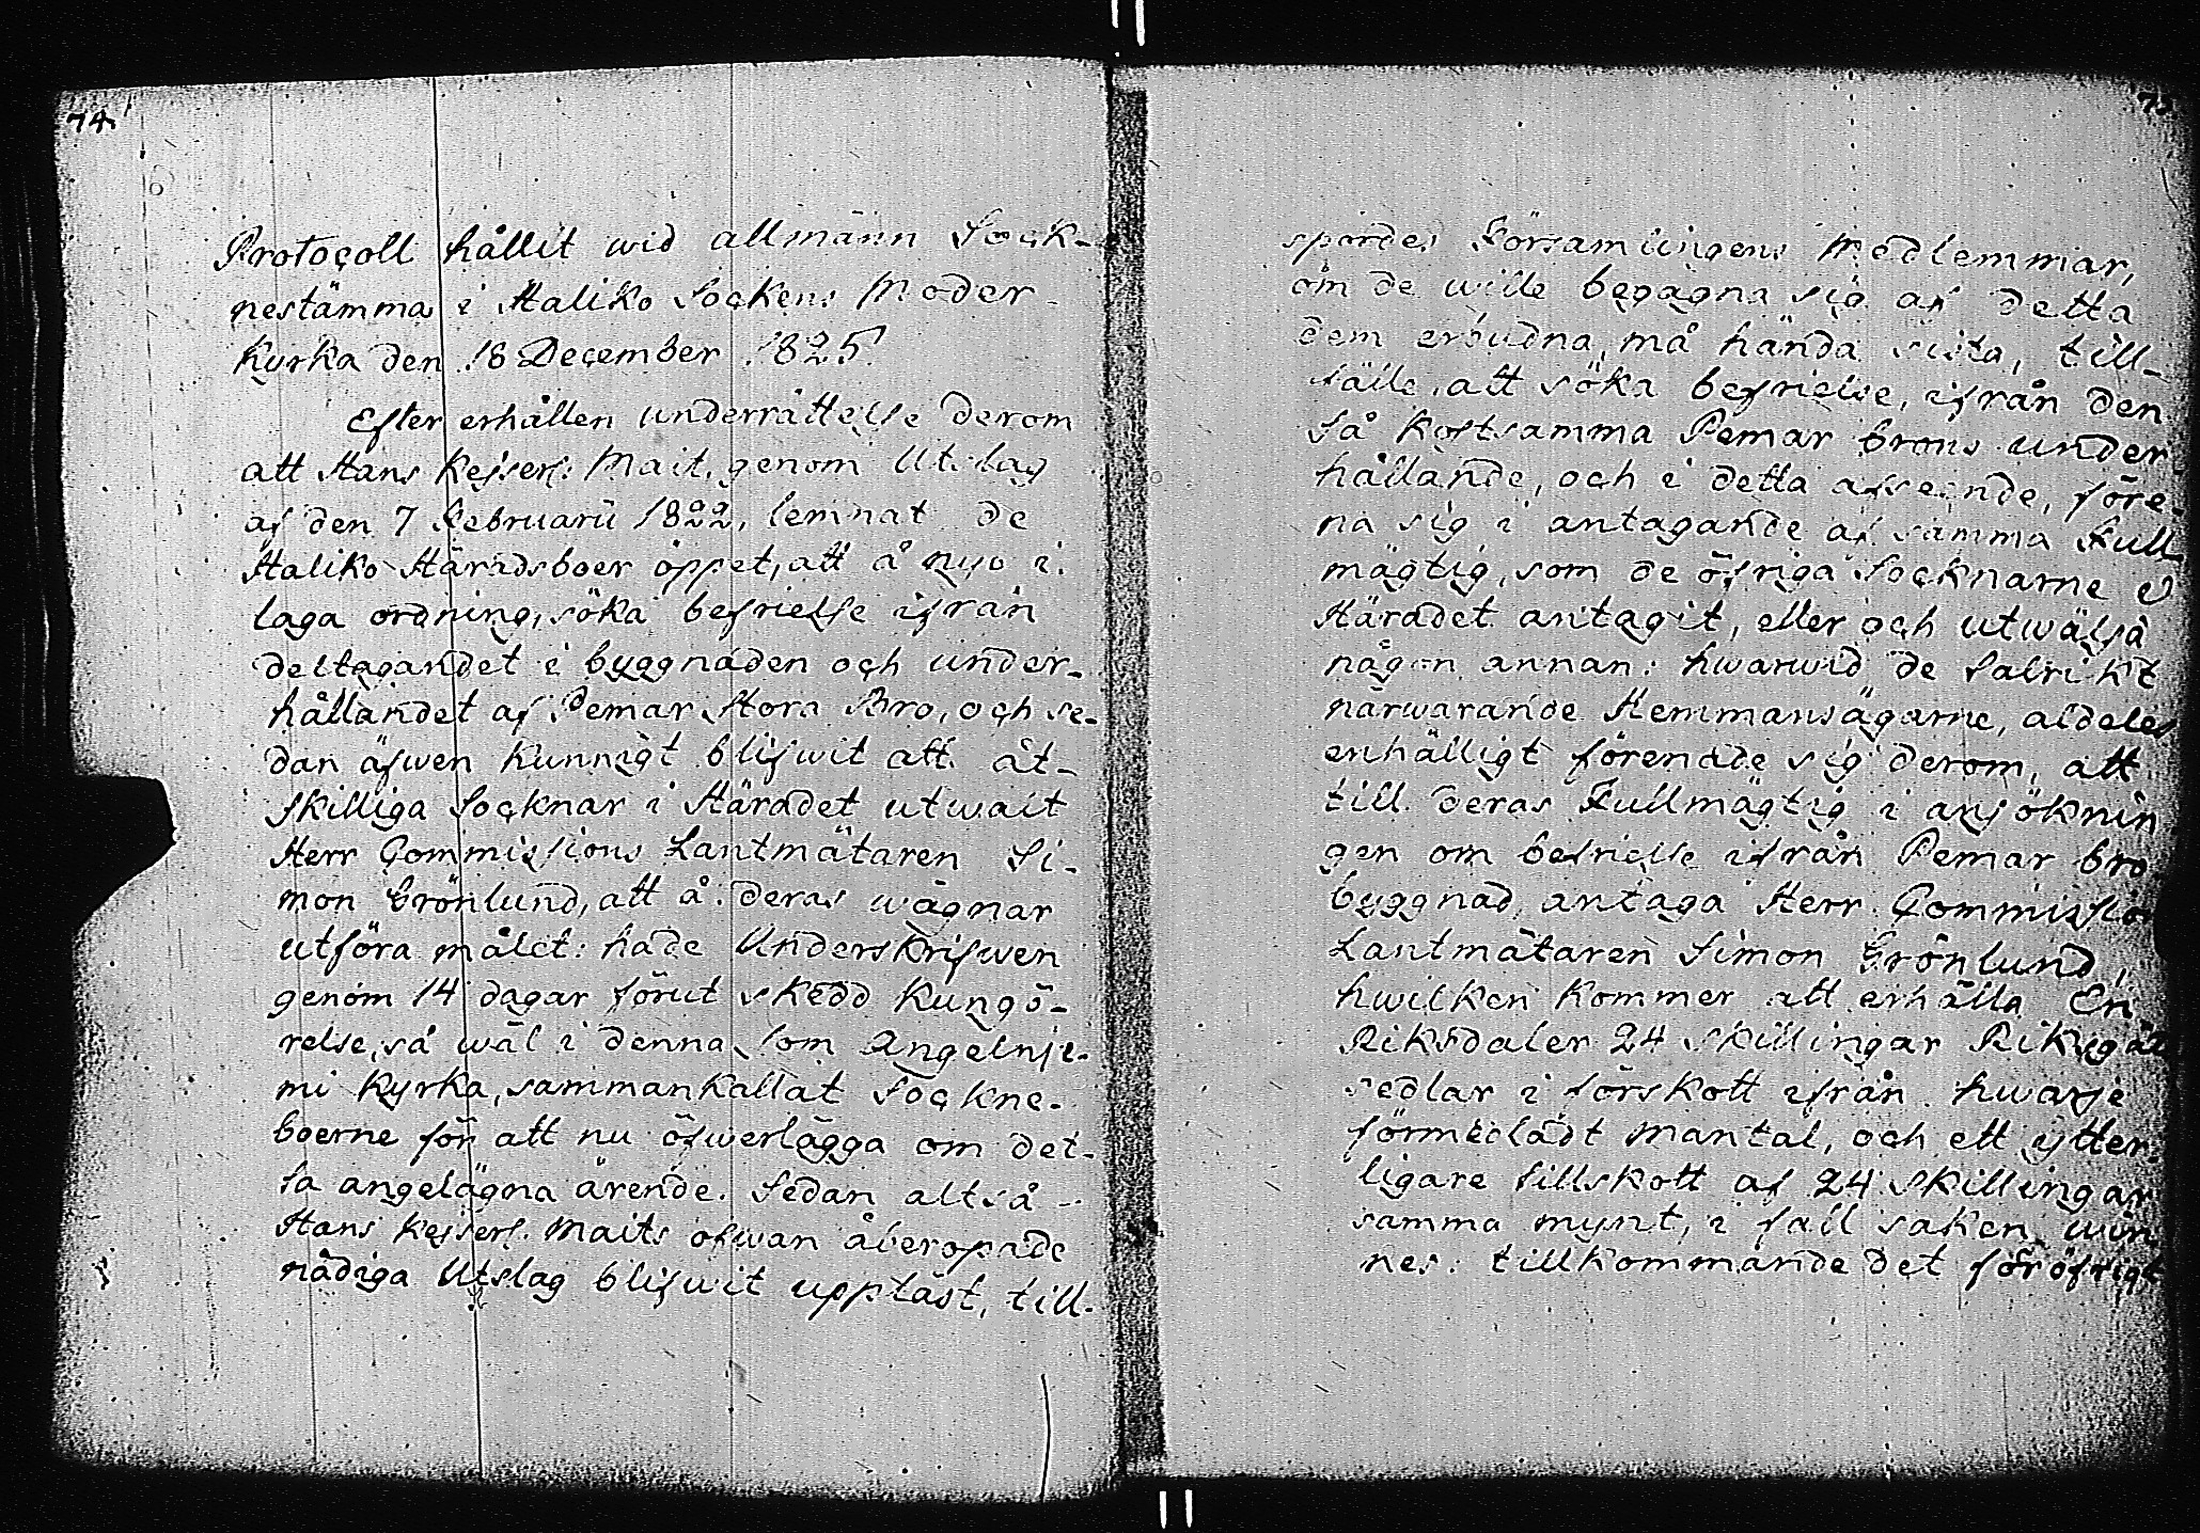 74.
Protocoll hållit wid allmänn Sock-
nestämma i Haliko Sockens Moder-
kyrka den 18 December 1825
Efter erhållen underrättelse derom
att Hans Kejserl: Mait. genom Utslag
af den 7 Februarii 1822, lemnat de
Haliko Häradsboer öppet, att å nyo i
laga ordning, söka befrielse ifrån
deltagandet i byggnaden och under-
hållandet af Pemar Stora Bro, och se-
dan äfwen kunnigt blifwit att åt-
skilliga Socknar i Häradet utwalt
Herr Commissions Lantmätaren Si-
mon Grönlund, att å deras wägnar
utföra målet: hade Underskrifwen
genom 14 dagar förut skedd kungö-
relse, så wäl i denna, som Angelnie-
mi kyrka, sammankallat Sockne-
boerne för att nu öfwerlägga om det-
ta angelägna ärende. Sedan altså
Hans Kejserl. Maits ofwan åberopade
nådiga Utslag blifwit uppläst, till-
spordes Församlingens Medlemmar,
om de wille begagna sig af detta
dem erbudna, må hända sista, till-
fälle, att söka befrielse, ifrån den
så kostsamma Pemar brons under-
hållande, och i detta afseende, före-
na sig i antagande af samma Full-
mägtig, som de öfriga Socknarne i
Häradet antagit, eller och utwälja
någon annan: hwarwid de talrikt
närwarande Hemmansägarne, aldeles
enhälligt förenade sig derom, att
till deras Fullmägtig i ansöknin
gen om befrielse ifrån Pemar bro
byggnad, antaga Herr Commissio
Lantmätaren Simon Grönlund,
hwilken kommer att erhålla En
Riksdaler 24 skillingar Riksgäl
sedlar i förskott ifrån hwarje
förmedladt mantal, och ett ytter-
ligare tillskott af 24 skillingar
samma mynt, i fall saken win
nes: tillkommande det föröfrigt